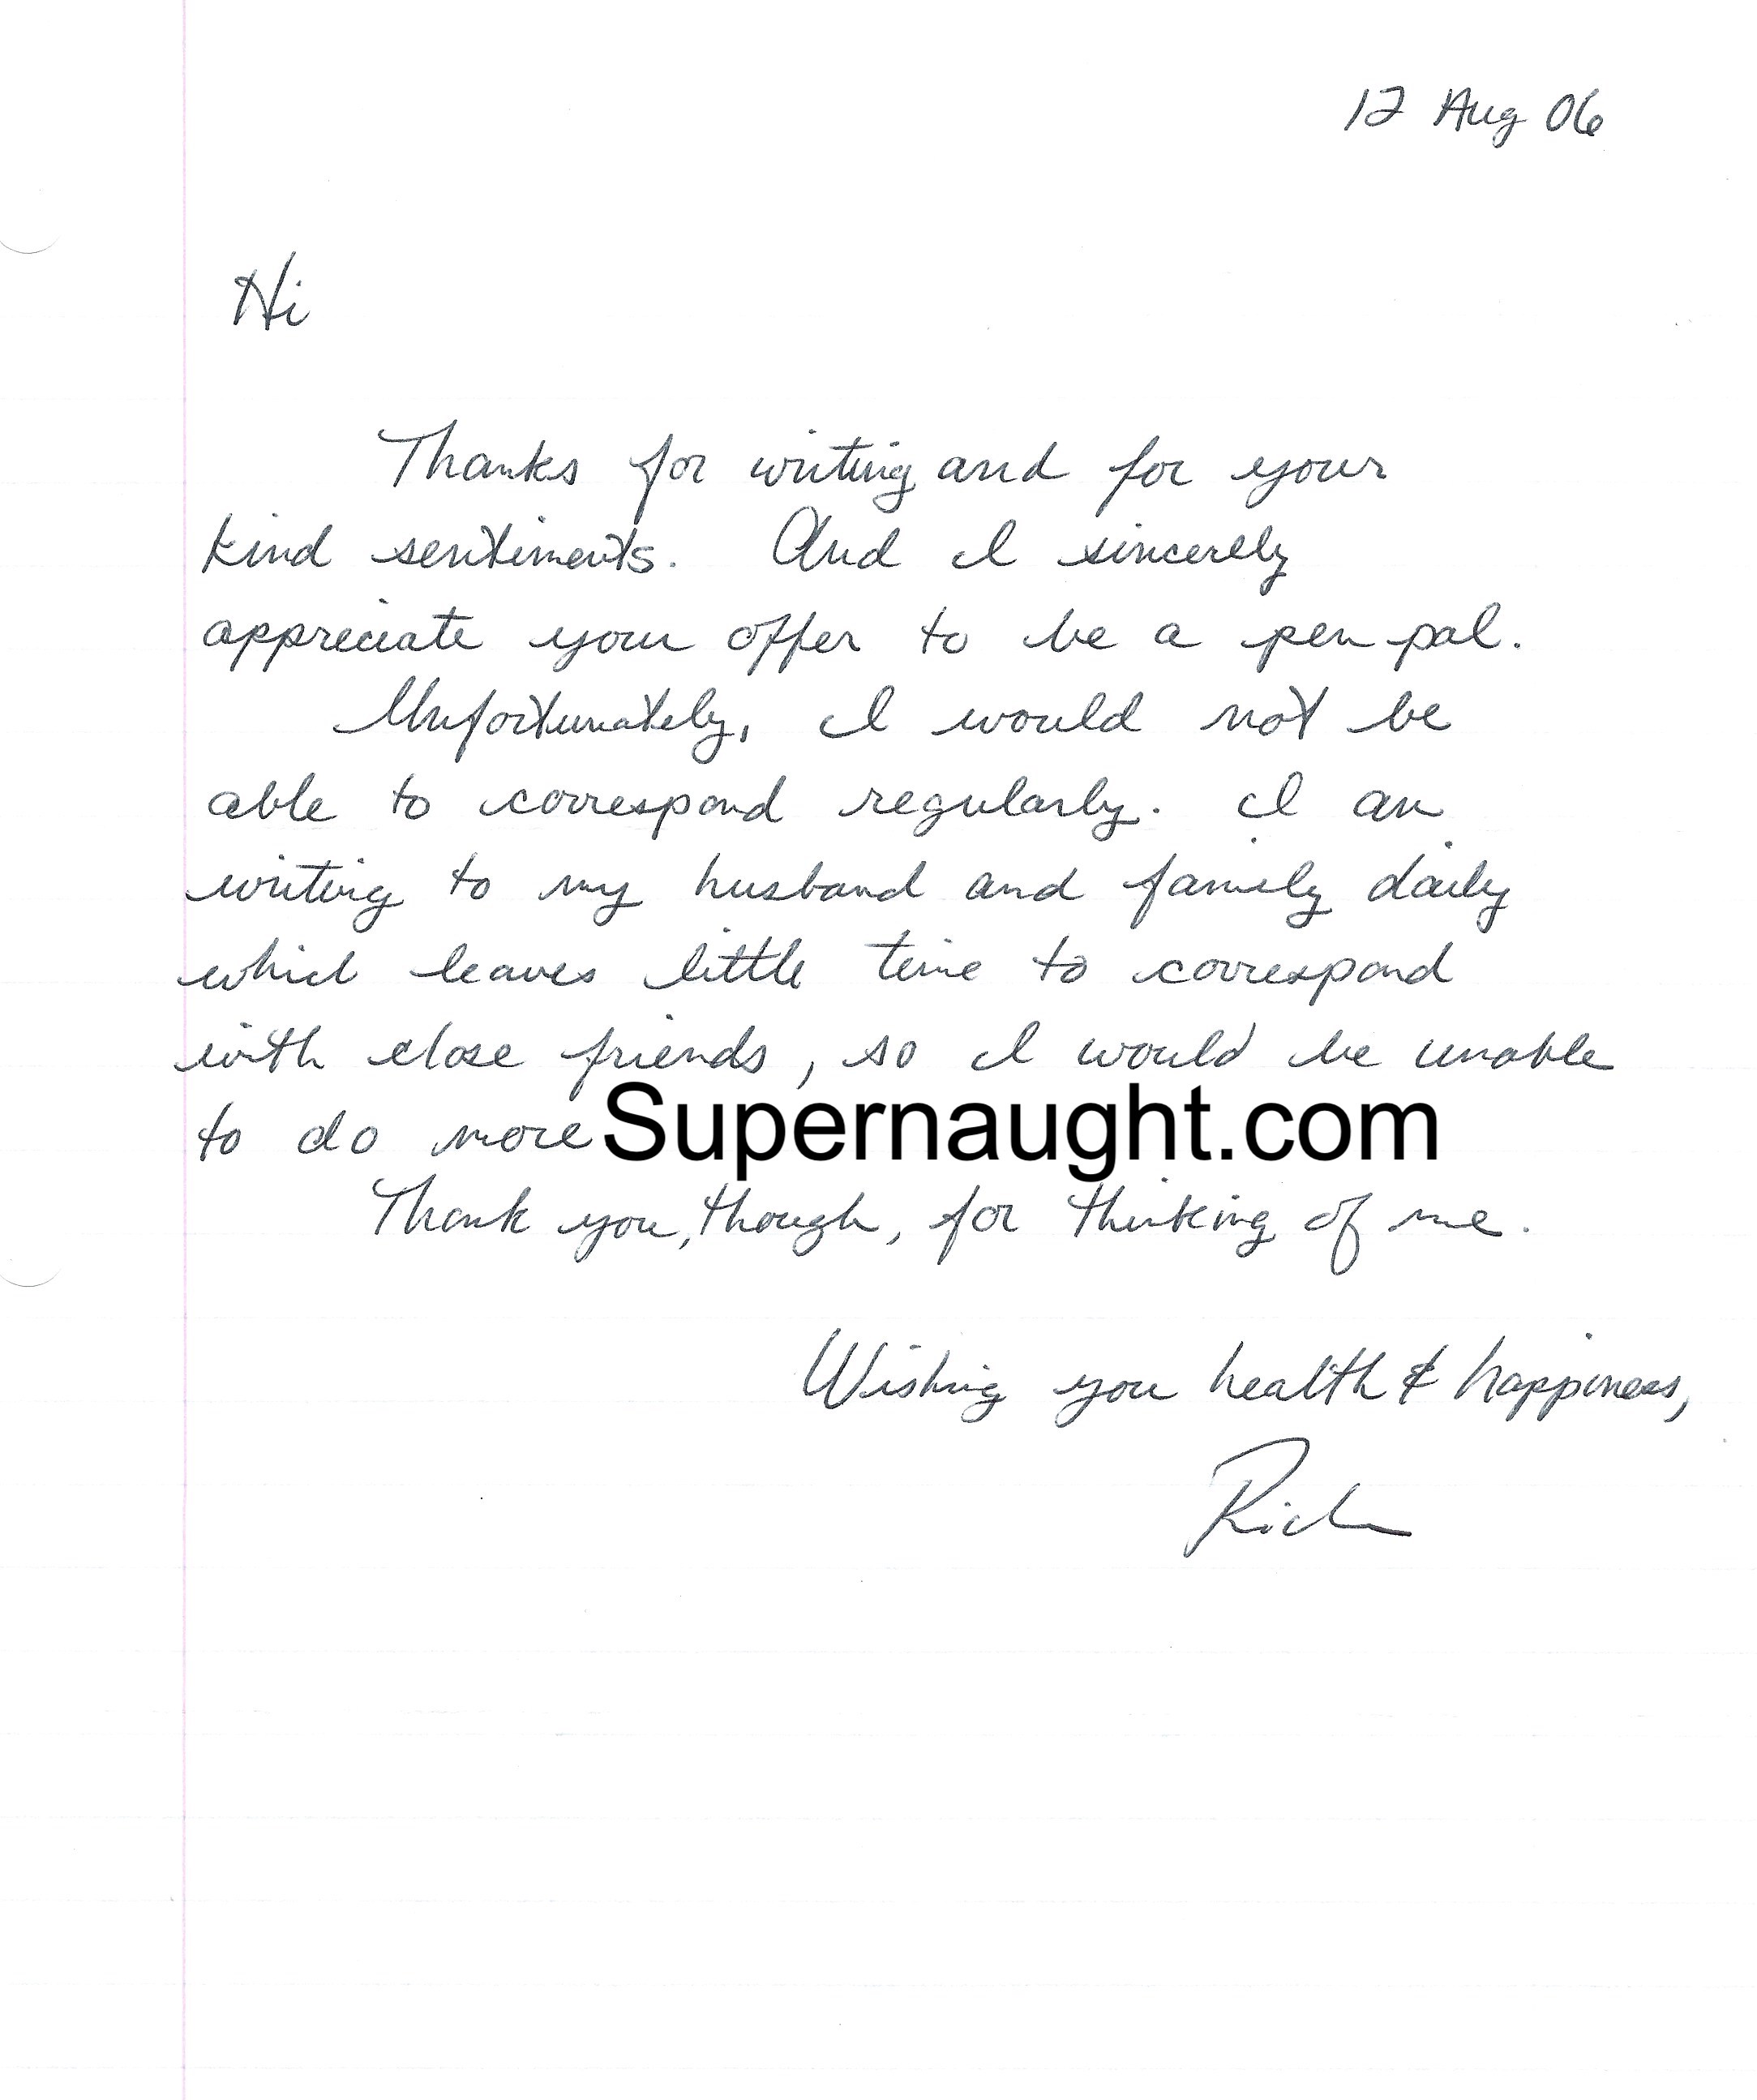 12 Aug 06
Hi
Thanks for writing and for your
kind sentiments. And I sincerely
appreciate your offer to be a pen pal.
Unfortunately, I would not be
able to correspond regularly. I am
writing to my husband and family daily
which leaves little time to correspond
with close friends, so I would be unable
to do more
Supernaught.com
Thank you, though, for thinking of me.
Wishing you health & happiness,
Rich